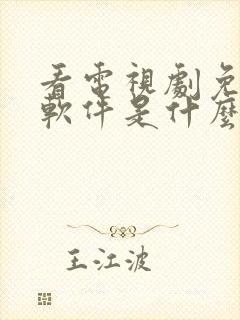 看電視劇免
軟件是什麼
王江波